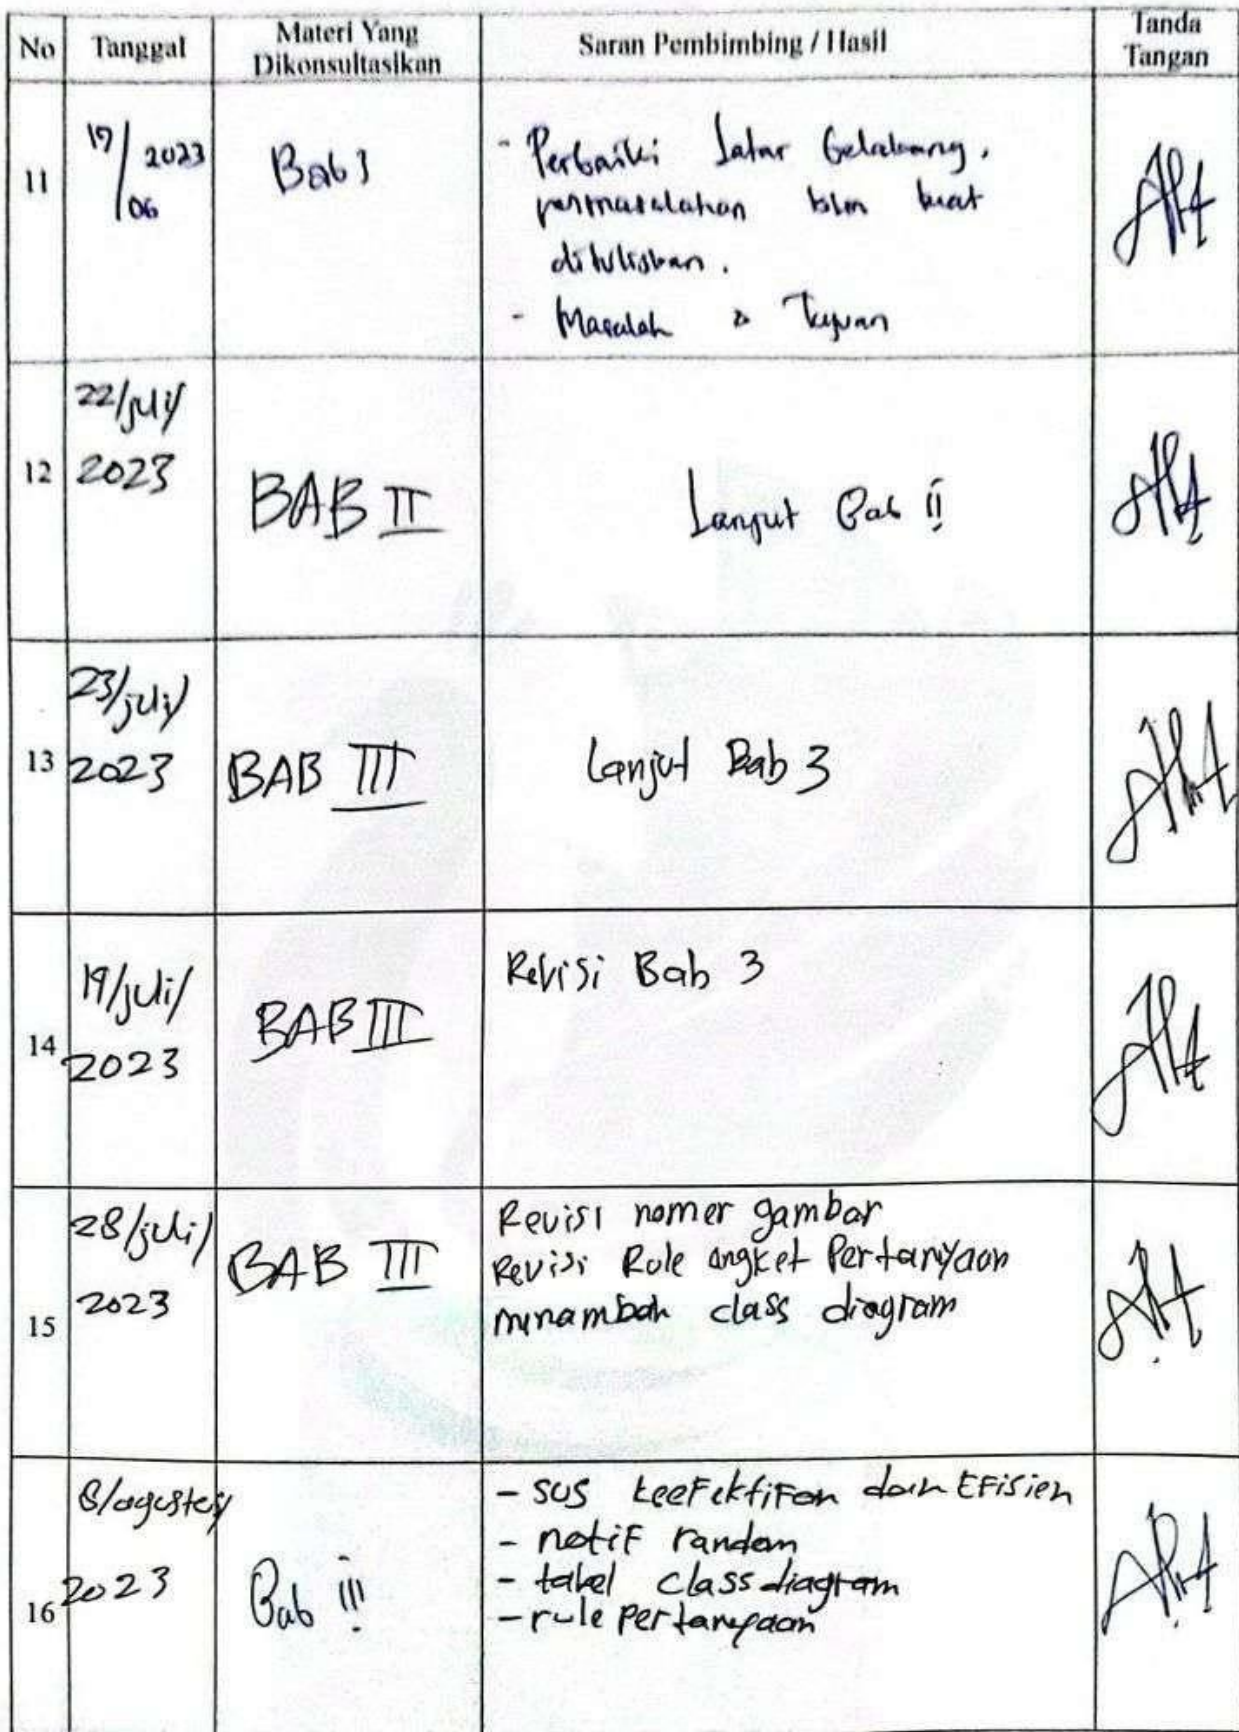 No Tanggal Materi Yang Dikonsultasikan Saran Pembimbing / Hasil Tanda Tangan
11
19/06 2023
Bab 1
- Perbaiki latar belakang,
permasalahan blm kuat
dituliskan.
- Masalah & Tujuan
12
22/juli/
2023
BAB II
Lanjut Bab ii
13
23/juli/
2023
BAB III
Lanjut Bab 3
14
19/juli/
2023
BAB III
Revisi Bab 3
15
28/juli/
2023
BAB III
Revisi nomer gambar
Revisi Role angket Pertanyaan
menambah class diagram
16
8/agustus/
2023
Bab iii
- SUS keefektifan dan Efisien
- notif random
- tabel class diagram
- rule pertanyaan